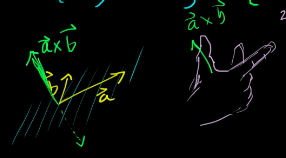 a⃗ × b⃗
b⃗
a⃗
a⃗ × b⃗
2